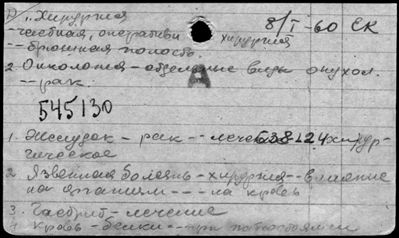 1), Хирургия 8/I-60 СК
частная, оперативн хирургия
-- брюшная полость
2 Онкология - отдельные виды опухол.
-- рак.
А
545130
1. Желудок - рак -- лечение 638124 хирур-
гическое
2 Язвенная болезнь - хирургия -- влияние
на организм --- на кровь
3. Гастрит - лечение
4 Кровь - белки -- при